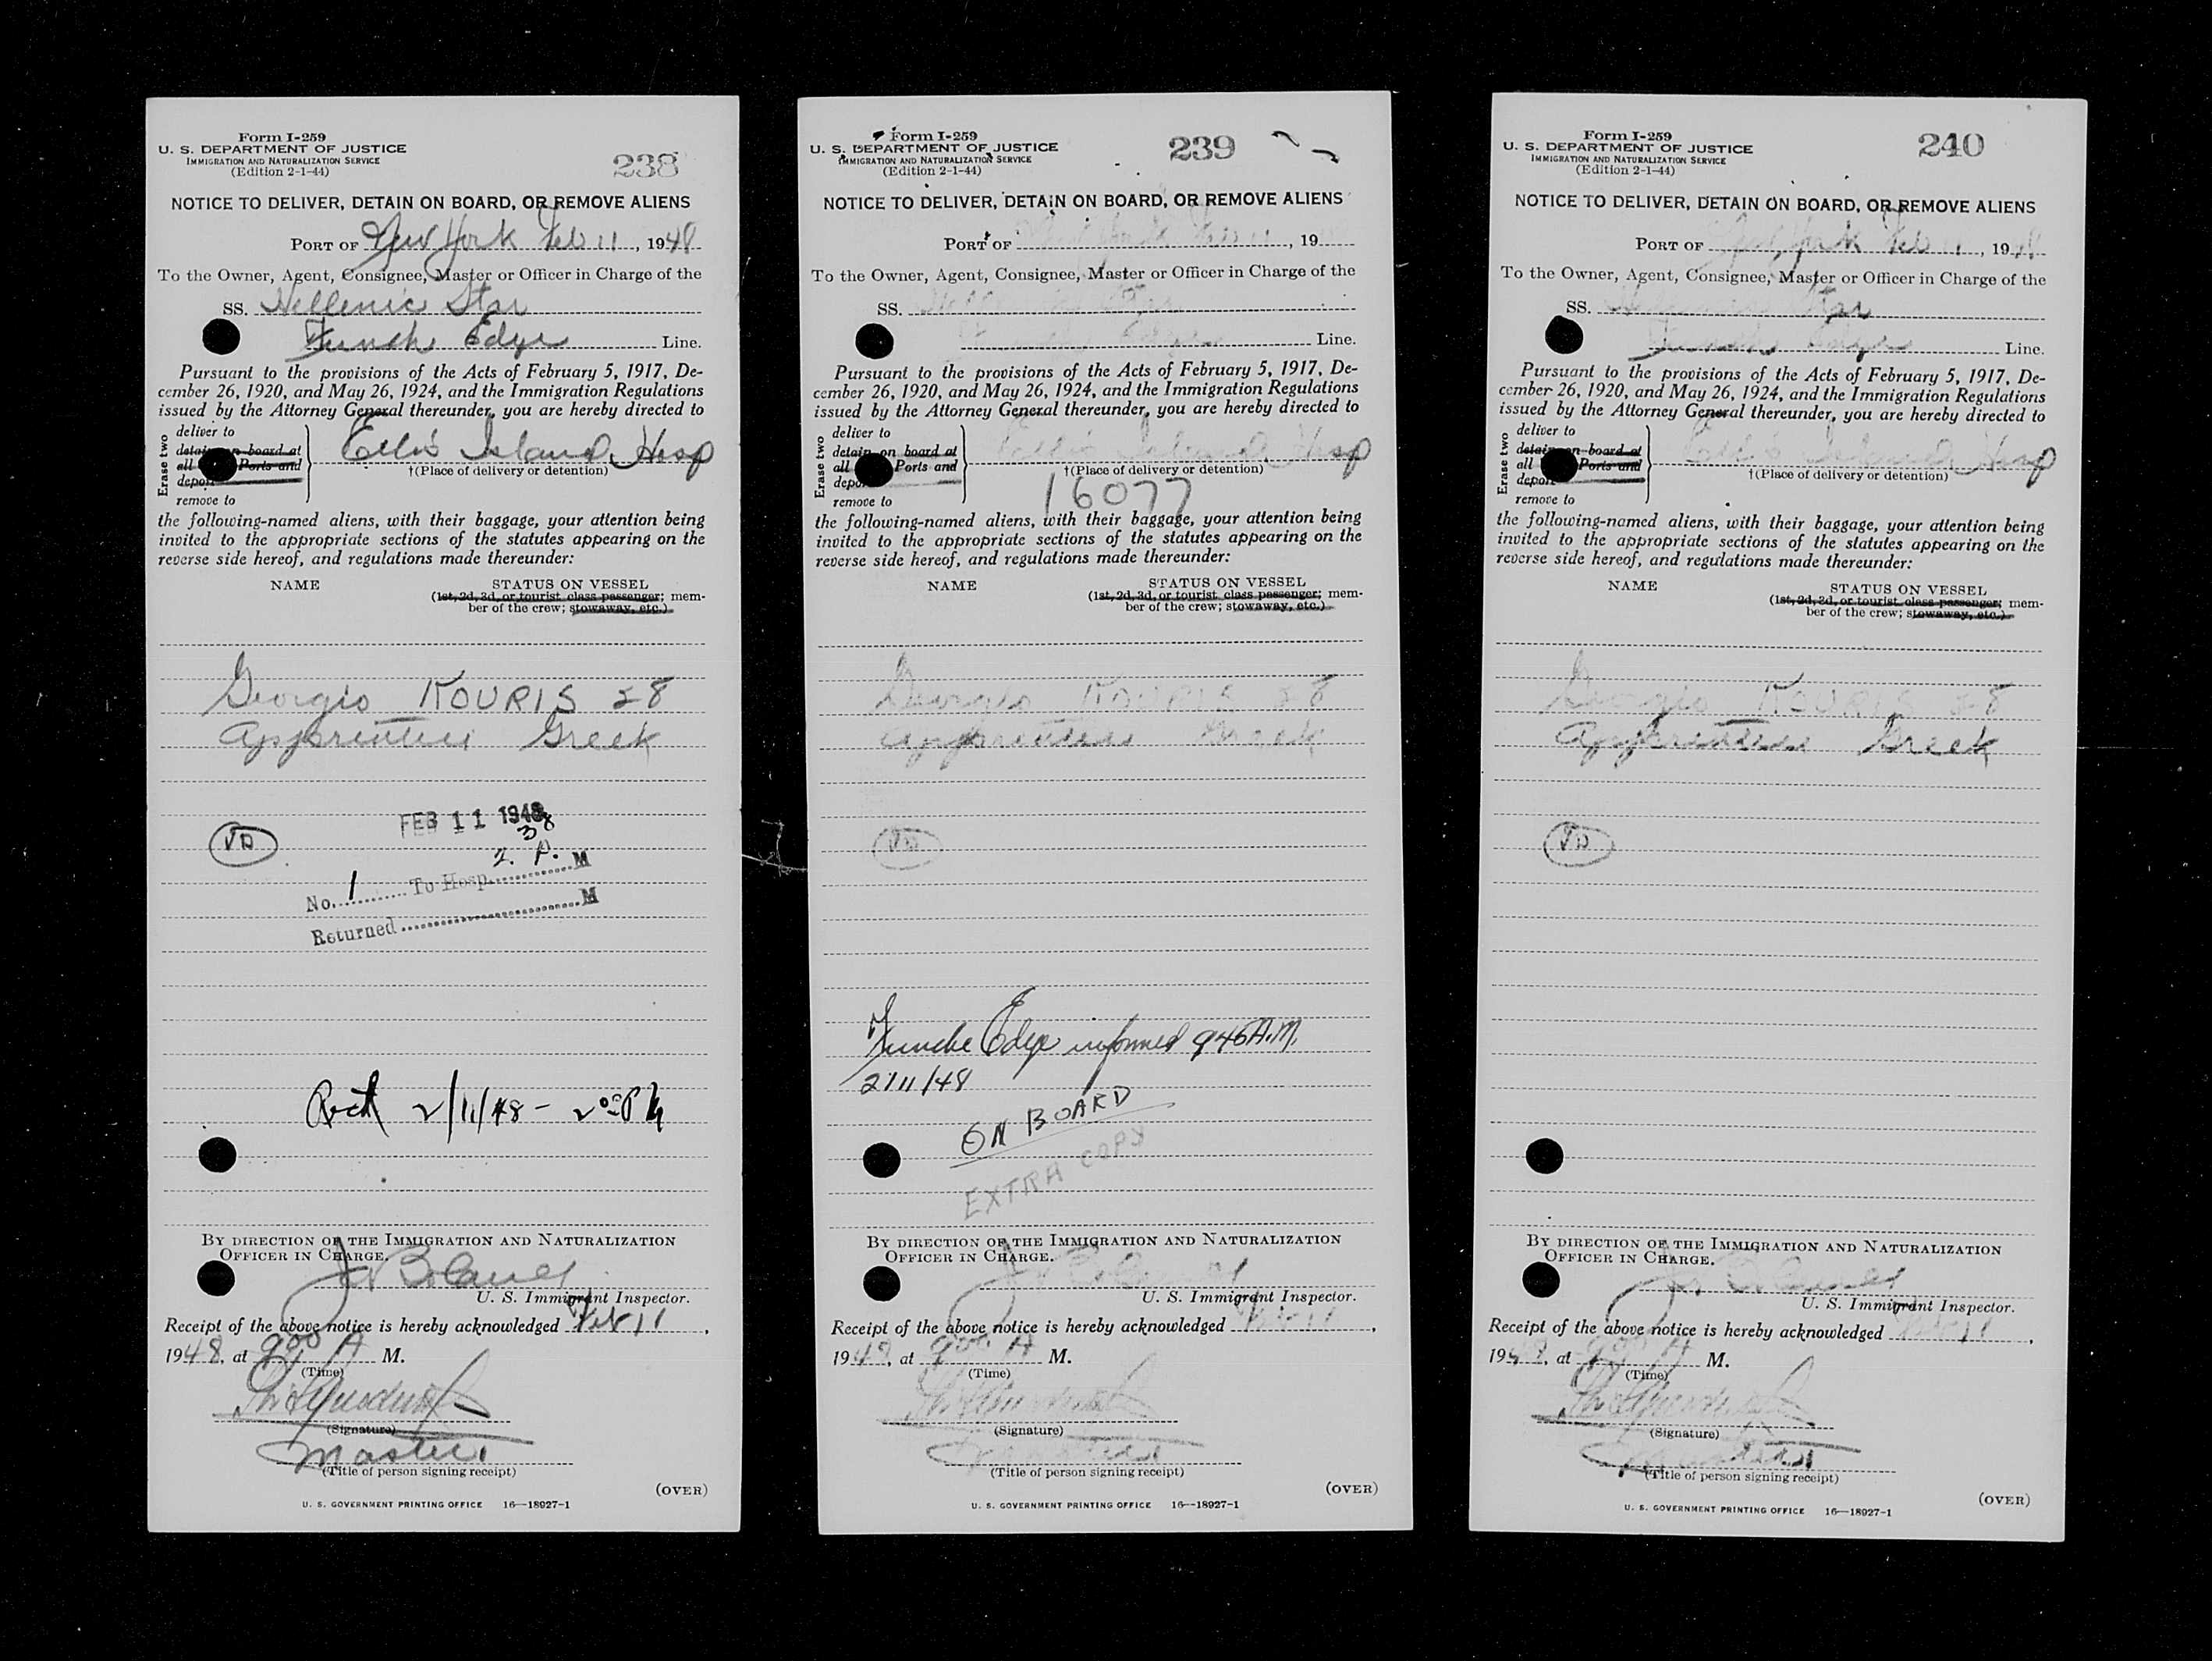 Form I-259
U. S. DEPARTMENT OF JUSTICE
IMMIGRATION AND NATURALIZATION SERVICE
(Edition 2-1-44)
238
NOTICE TO DELIVER, DETAIN ON BOARD, OR REMOVE ALIENS
PORT OF New York Feb 11, 1948
To the Owner, Agent, Consignee, Master or Officer in Charge of the
SS. Hellenic Star
Funch Edye Line.
Pursuant to the provisions of the Acts of February 5, 1917, De-
cember 26, 1920, and May 26, 1924, and the Immigration Regulations
issued by the Attorney General thereunder, you are hereby directed to
Erase two
deliver to
detain on board at
all Ports and
depor
remove to
Ellis Island Hosp
†(Place of delivery or detention)
the following-named aliens, with their baggage, your attention being
invited to the appropriate sections of the statutes appearing on the
reverse side hereof, and regulations made thereunder:
NAME STATUS ON VESSEL
(1st, 2d, 3d, or tourist class passenger; mem-
ber of the crew; stowaway, etc.)
Georgio KOURIS 28
Apprentice Greek
FEB 11 1948
VD
38
2. P. M
No. 1 To Hosp.
Returned M
Recd 2/11/48 - 2 00 PM
BY DIRECTION OF THE IMMIGRATION AND NATURALIZATION
OFFICER IN CHARGE.
U. S. Immigrant Inspector.
Receipt of the above notice is hereby acknowledged Feb 11,
1948, at 9 00 A M.
(Time)
(Signature)
Master
(Title of person signing receipt)
(OVER)
U. S. GOVERNMENT PRINTING OFFICE 16—18927-1
Form I-259
U. S. DEPARTMENT OF JUSTICE
IMMIGRATION AND NATURALIZATION SERVICE
(Edition 2-1-44)
239
NOTICE TO DELIVER, DETAIN ON BOARD, OR REMOVE ALIENS
PORT OF New York Feb 11, 19
To the Owner, Agent, Consignee, Master or Officer in Charge of the
SS. Hellenic Star
Funch Edye Line.
Pursuant to the provisions of the Acts of February 5, 1917, De-
cember 26, 1920, and May 26, 1924, and the Immigration Regulations
issued by the Attorney General thereunder, you are hereby directed to
Erase two
deliver to
detain on board at
all Ports and
depor
remove to
Ellis Island Hosp
†(Place of delivery or detention)
16077
the following-named aliens, with their baggage, your attention being
invited to the appropriate sections of the statutes appearing on the
reverse side hereof, and regulations made thereunder:
NAME STATUS ON VESSEL
(1st, 2d, 3d, or tourist class passenger; mem-
ber of the crew; stowaway, etc.)
Georgio KOURIS 28
Apprentice Greek
VD
Funche Edye informed 945 A.M.
2/11/48
ON BOARD
EXTRA COPY
BY DIRECTION OF THE IMMIGRATION AND NATURALIZATION
OFFICER IN CHARGE.
U. S. Immigrant Inspector.
Receipt of the above notice is hereby acknowledged Feb 11,
1948, at 9 00 A M.
(Time)
(Signature)
Master
(Title of person signing receipt)
(OVER)
U. S. GOVERNMENT PRINTING OFFICE 16—18927-1
Form I-259
U. S. DEPARTMENT OF JUSTICE
IMMIGRATION AND NATURALIZATION SERVICE
(Edition 2-1-44)
240
NOTICE TO DELIVER, DETAIN ON BOARD, OR REMOVE ALIENS
PORT OF New York Feb 11, 1948
To the Owner, Agent, Consignee, Master or Officer in Charge of the
SS. Hellenic Star
Funch Edye Line.
Pursuant to the provisions of the Acts of February 5, 1917, De-
cember 26, 1920, and May 26, 1924, and the Immigration Regulations
issued by the Attorney General thereunder, you are hereby directed to
Erase two
deliver to
detain on board at
all Ports and
depor
remove to
Ellis Island Hosp
†(Place of delivery or detention)
the following-named aliens, with their baggage, your attention being
invited to the appropriate sections of the statutes appearing on the
reverse side hereof, and regulations made thereunder:
NAME STATUS ON VESSEL
(1st, 2d, 3d, or tourist class passenger; mem-
ber of the crew; stowaway, etc.)
Georgio KOURIS 28
Apprentice Greek
VD
BY DIRECTION OF THE IMMIGRATION AND NATURALIZATION
OFFICER IN CHARGE.
U. S. Immigrant Inspector.
Receipt of the above notice is hereby acknowledged Feb 11,
1948, at 9 00 A M.
(Time)
(Signature)
Master
(Title of person signing receipt)
(OVER)
U. S. GOVERNMENT PRINTING OFFICE 16—18927-1